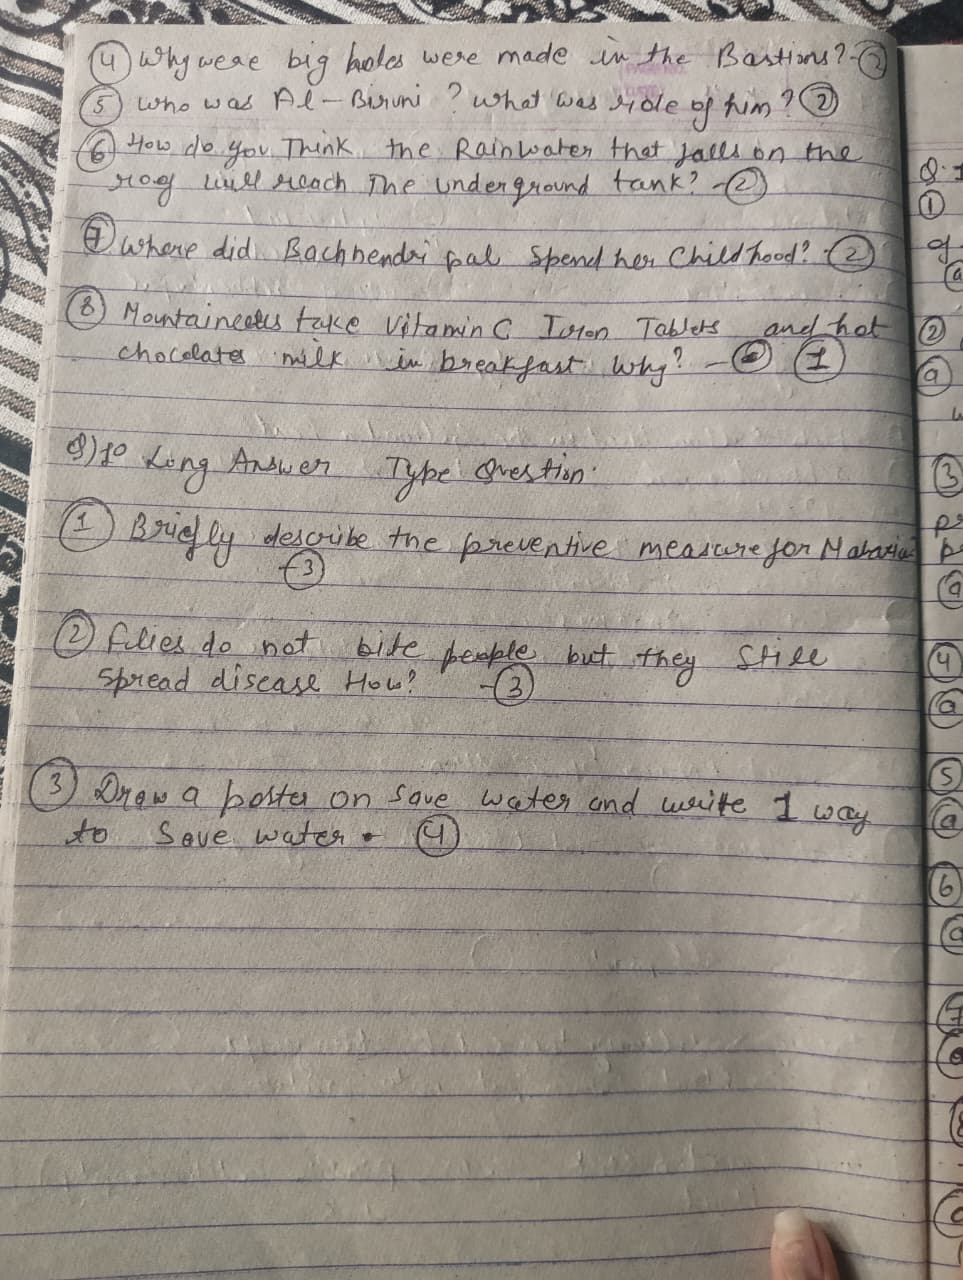 ④ Why were big holes were made in the Bastions? - ②
⑤ Who was Al-Biruni? What was role of him? ②
⑥ How do you Think the Rainwater that falls on the
roof will reach The underground tank? - ②
⑦ Where did Bachhendri pal Spend her Childhood? - ②
⑧ Mountaineers take Vitamin C Iron Tablets and hot
chocolates milk in breakfast Why? - ①
Q)10 Long Answer Type Question.
① Briefly describe the preventive measure for Malaria?
- ③
② Filies do not bite people but they Still
Spread disease How? - ③
③ Draw a poster on Save water and write 1 way
to Save water. ④
Q.1
①
of
ⓐ
②
ⓐ
③
ⓐ
④
ⓐ
⑤
ⓐ
⑥
ⓐ
⑦